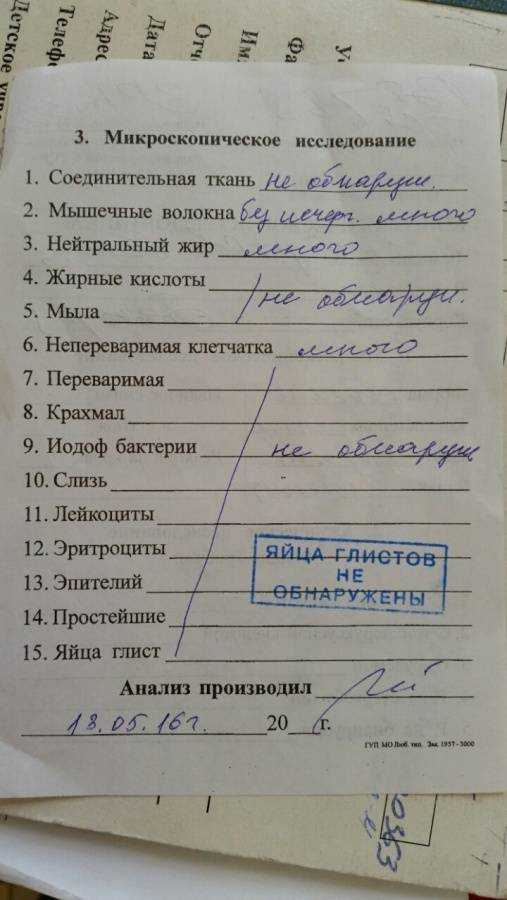 Детское учр
Телефо
Адрес
Дата
Отч
Им
Фа
У
3. Микроскопическое исследование
1. Соединительная ткань не обнаруж.
2. Мышечные волокна без исчерч. много
3. Нейтральный жир много
4. Жирные кислоты не обнаруж.
5. Мыла
6. Непереваримая клетчатка много
7. Переваримая
8. Крахмал
9. Иодоф бактерии не обнаруж
10. Слизь
11. Лейкоциты
12. Эритроциты
13. Эпителий
14. Простейшие
15. Яйца глист
ЯЙЦА ГЛИСТОВ
НЕ
ОБНАРУЖЕНЫ
Анализ производил
13.05.16г. 20 г.
ГУП МО Люб. тип. Зак. 1957-2000